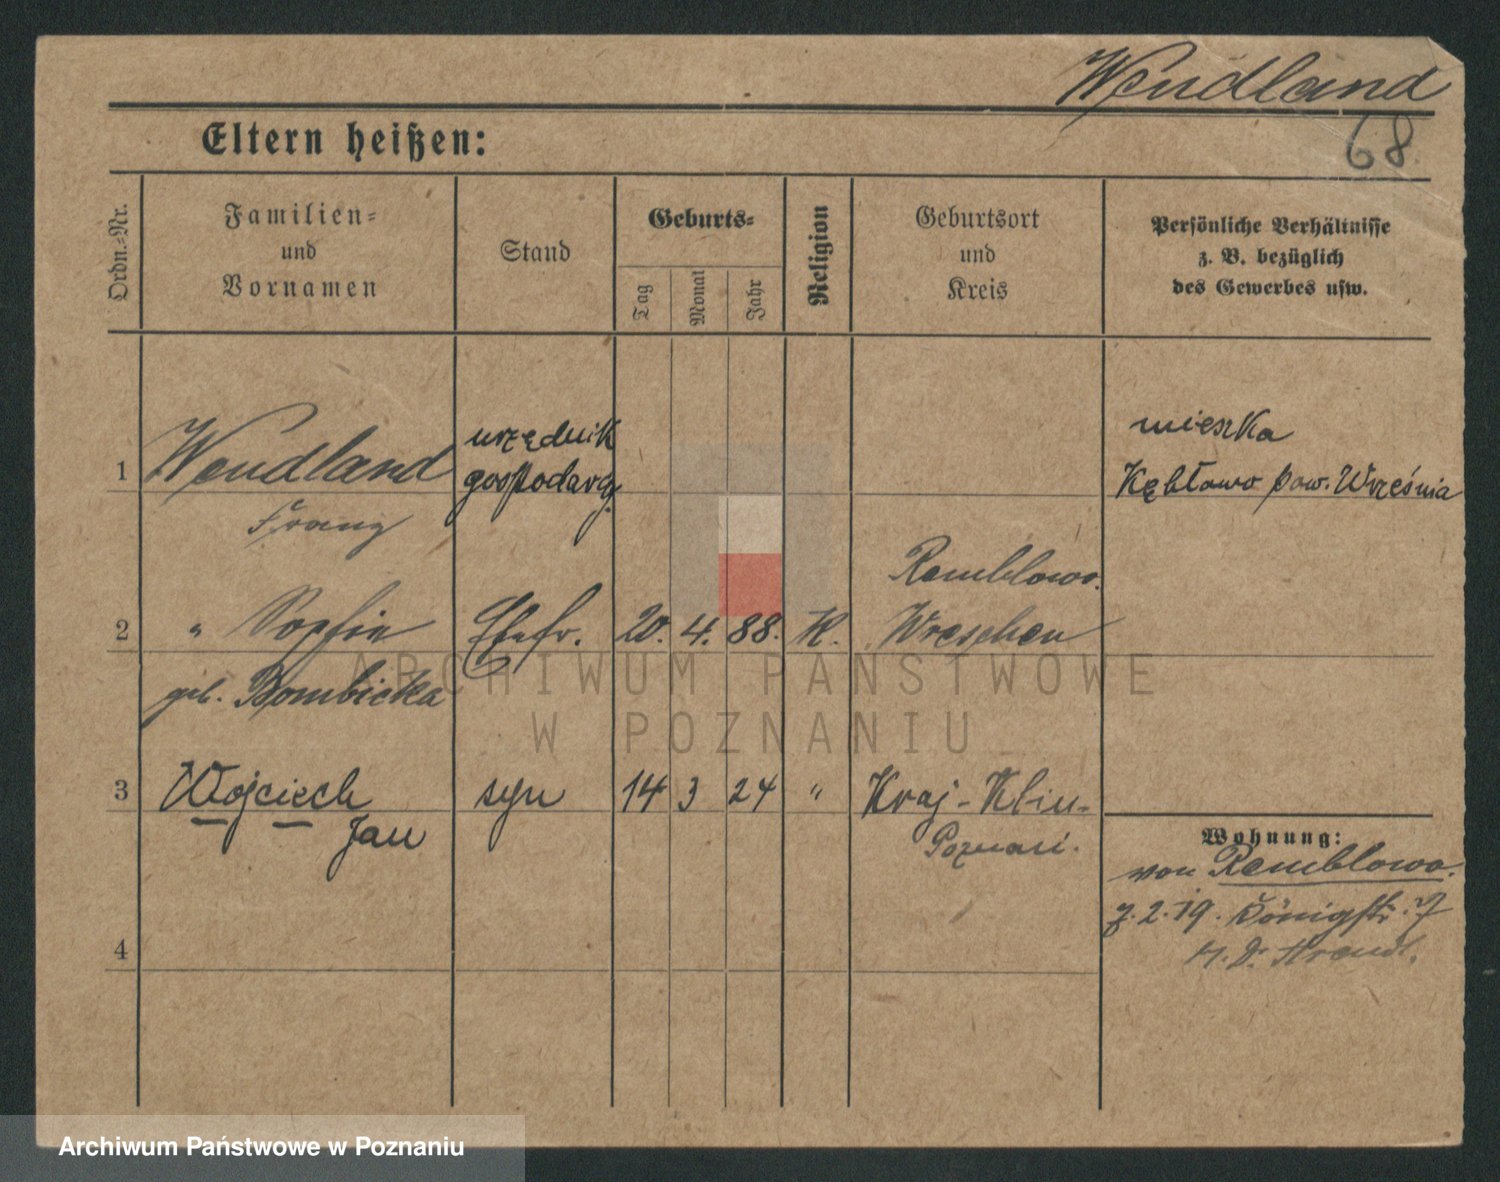 Wendland
68.
Eltern heißen:
Ordn.=Nr.
Familien=
und
Vornamen
Stand
Geburts=
Tag
Monat
Jahr
Religion
Geburtsort
und
Kreis
Persönliche Verhältnisse
z. B. bezüglich
des Gewerbes usw.
1 Wendland urzędnik
gospodarcz.
mieszka
Kębłowo pow. Września
Franz
Remblowo.
2 " Sophie Ehefr. 20. 4. 88. K. Wreschen
geb. Bombicka
3 Wojciech syn 14 3 24 " Kraj-Klin-
Jan
Poznań.
Wohnung:
von Remblowo.
z. 2. 19. Königstr. 7
4
ARCHIWUM PAŃSTWOWE
W POZNANIU
Archiwum Państwowe w Poznaniu